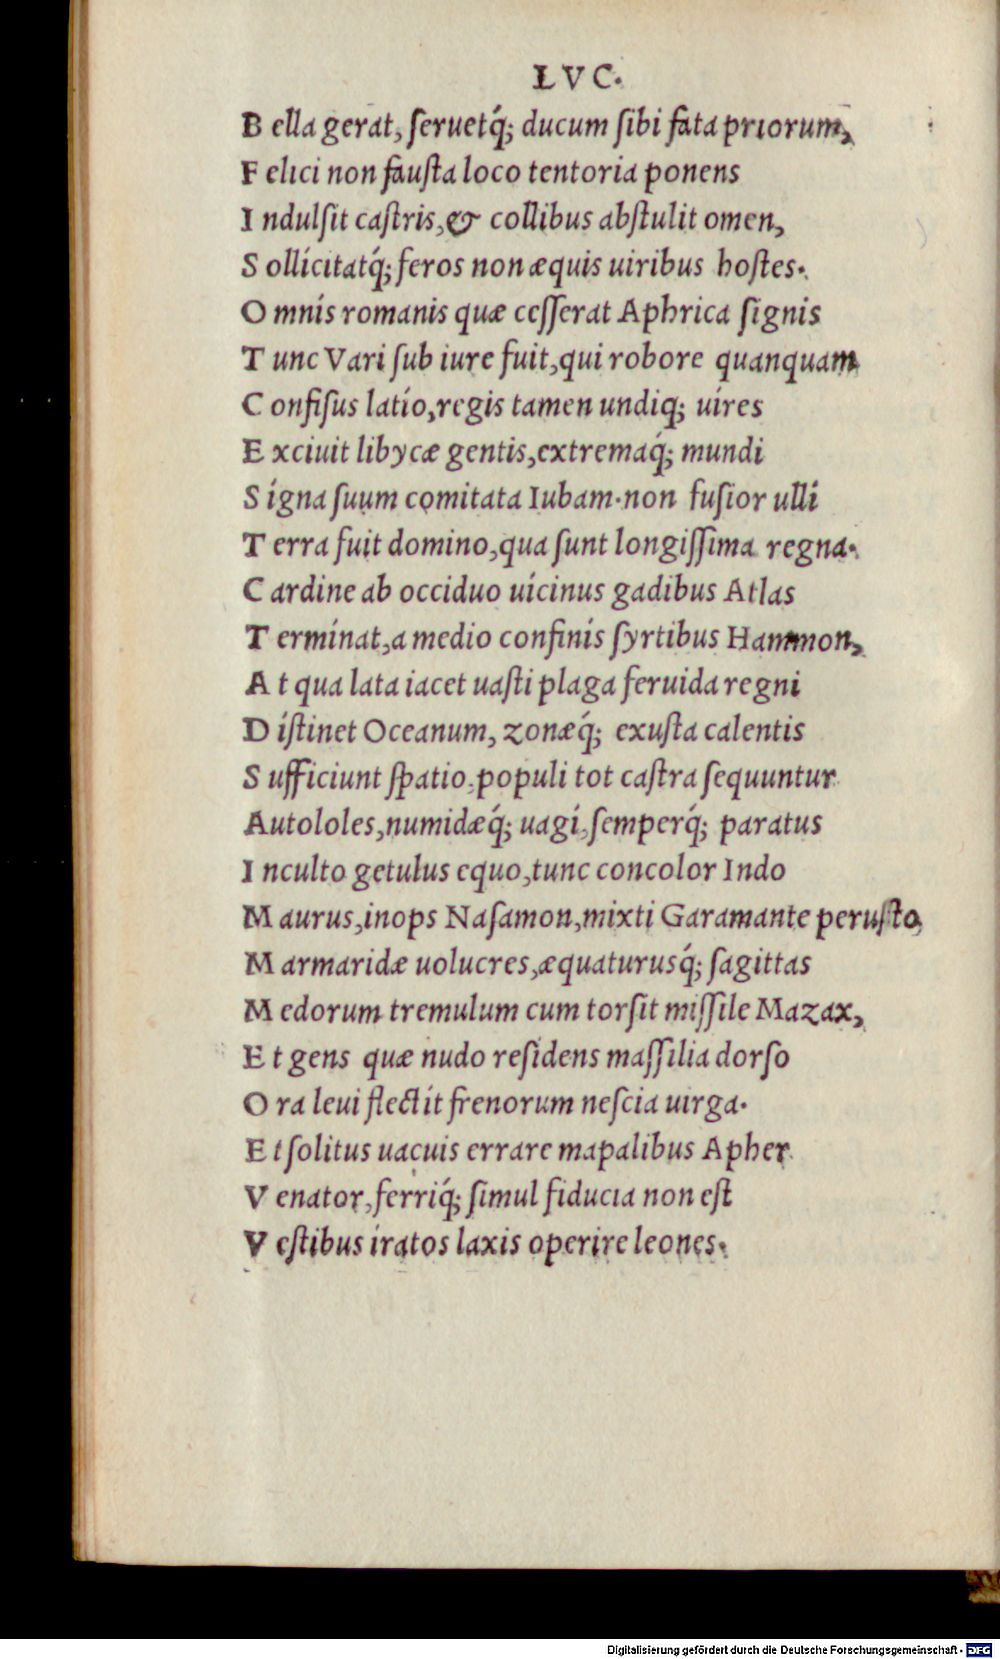 LVC.
B ella gerat, ſeruetq́; ducum ſibi fata priorum,
F elici non fauſta loco tentoria ponens
I ndulſit caſtris, & collibus abſtulit omen,
S ollicitatq́; feros non æquis uiribus hoſtes.
O mnis romanis quæ ceſſerat Aphrica ſignis
T unc Vari ſub iure fuit, qui robore quanquam
C onfiſus latio, regis tamen undiq; uires
E xciuit libycæ gentis, extremaq́; mundi
S igna ſuum comitata Iubam. non fuſior ulli
T erra fuit domino, qua ſunt longiſſima regna.
C ardine ab occiduo uicinus gadibus Atlas
T erminat, a medio confinis ſyrtibus Hammon,
A t qua lata iacet uaſti plaga feruida regni
D iſtinet Oceanum, zonæq́; exuſta calentis
S ufficiunt ſpatio. populi tot caſtra ſequuntur
Autololes, numidæq́; uagi, ſemperq́; paratus
I nculto getulus equo, tunc concolor Indo
M aurus, inops Naſamon, mixti Garamante peruſto,
M armaridæ uolucres, æquaturusq́; ſagittas
M edorum tremulum cum torſit miſſile Mazax,
E t gens quæ nudo reſidens maſſilia dorſo
O ra leui flectit frenorum neſcia uirga.
E t ſolitus uacuis errare mapalibus Apher
V enator, ferriq́; ſimul fiducia non eſt
V eſtibus iratos laxis operire leones.
Digitalisierung gefördert durch die Deutsche Forschungsgemeinschaft - DFG